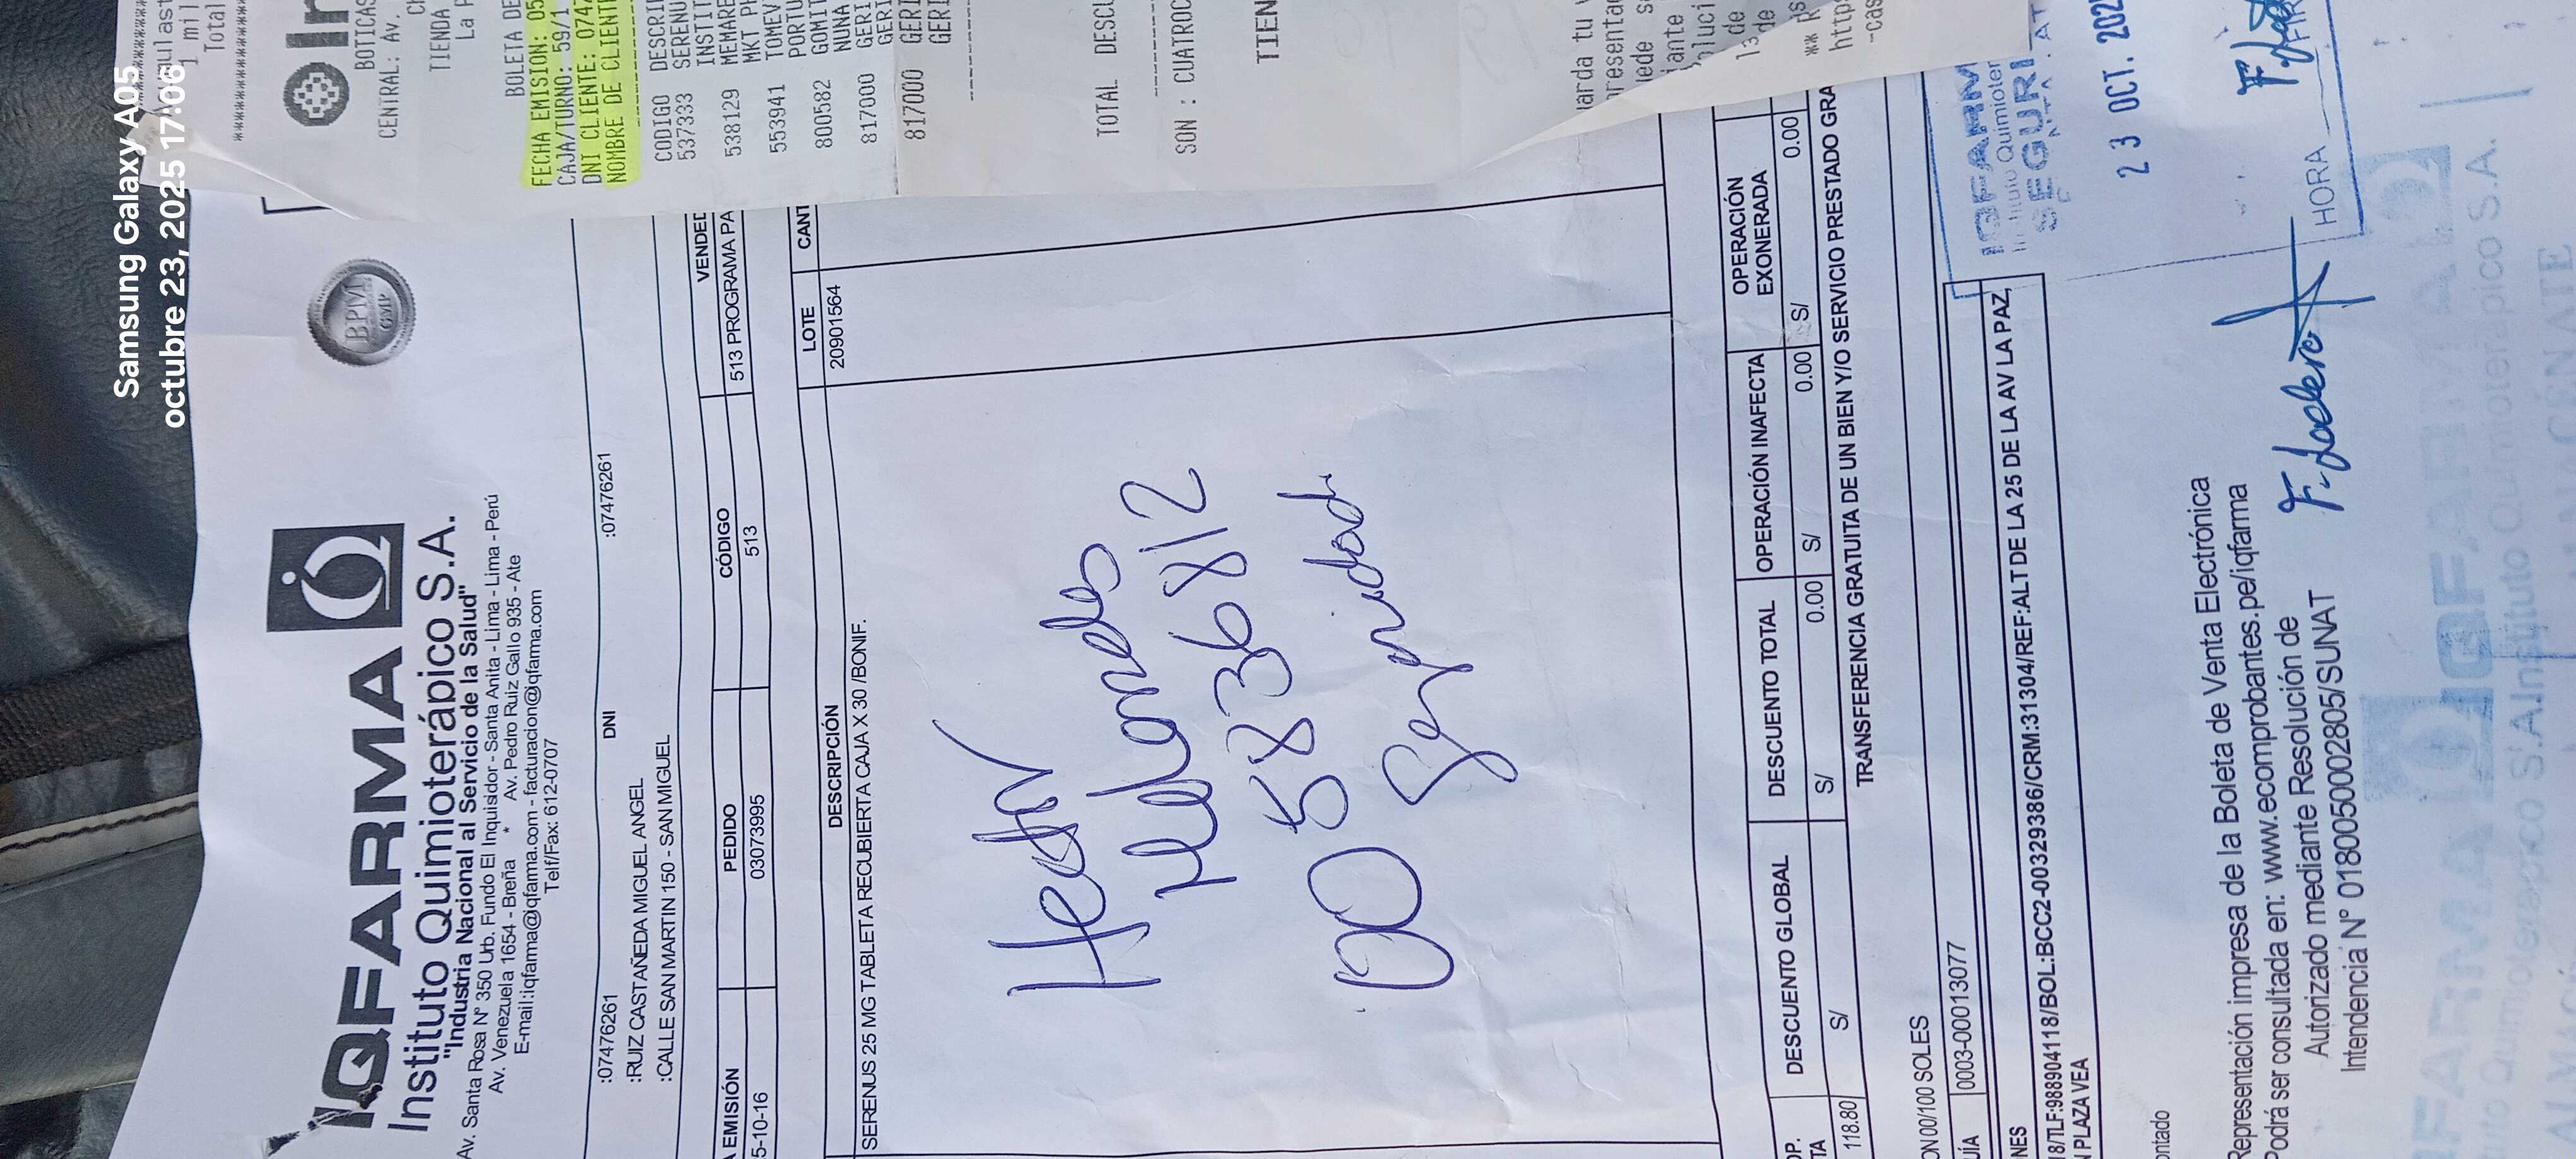 Samsung Galaxy A05
octubre 23, 2025 17:06
IQFARMA
Instituto Quimioterápico S.A.
"Industria Nacional al Servicio de la Salud"
Av. Santa Rosa Nº 350 Urb. Fundo El Inquisidor - Santa Anita - Lima - Lima - Perú
Av. Venezuela 1654 - Breña * Av. Pedro Ruiz Gallo 935 - Ate
E-mail:iqfarma@iqfarma.com - facturacion@iqfarma.com
Telf/Fax: 612-0707
BPM
GMP
:07476261 DNI :07476261
:RUIZ CASTAÑEDA MIGUEL ANGEL
:CALLE SAN MARTIN 150 - SAN MIGUEL
A EMISIÓN PEDIDO CÓDIGO VENDED
5-10-16 03073995 513 513 PROGRAMA PA
DESCRIPCIÓN LOTE CANT
SERENUS 25 MG TABLETA RECUBIERTA CAJA X 30 /BONIF. 20901564
Hector
Melendes
005836812
Seguridad
OP. DESCUENTO GLOBAL DESCUENTO TOTAL OPERACIÓN INAFECTA OPERACIÓN EXONERADA
TA
118.80 S/ S/ 0.00 S/ 0.00 S/ 0.00
TRANSFERENCIA GRATUITA DE UN BIEN Y/O SERVICIO PRESTADO GRA
ON 00/100 SOLES
UÍA 0003-00013077
NES
18/TLF:988904118/BOL:BCC2-00329386/CRM:31304/REF:ALT DE LA 25 DE LA AV LA PAZ,
N PLAZA VEA
ontado
Representación impresa de la Boleta de Venta Electrónica
Podrá ser consultada en: www.ecomprobantes.pe/iqfarma
Autorizado mediante Resolución de
Intendencia Nº 0180050002805/SUNAT
IQFARM
Quimioter
SEGURI
23 OCT. 202
HORA
FIR
1 mil
Total
In
BOTICAS
CENTRAL: Av.
TIENDA
La P
BOLETA DE
FECHA EMISION: 05
CAJA/TURNO: 59/1
DNI CLIENTE: 074
NOMBRE DE CLIENT
CODIGO DESCRI
537333 SERENU
INSTIT
538129 MEMARE
MKT PH
553941 TOMEV
PORTU
800582 GOMIT
NUNA
817000 GERI
GERI
817000 GERI
GERI
TOTAL DESCU
SON : CUATROC
TIEN
uarda tu
presenta
iante
oluci
13 de
de
http
-cas